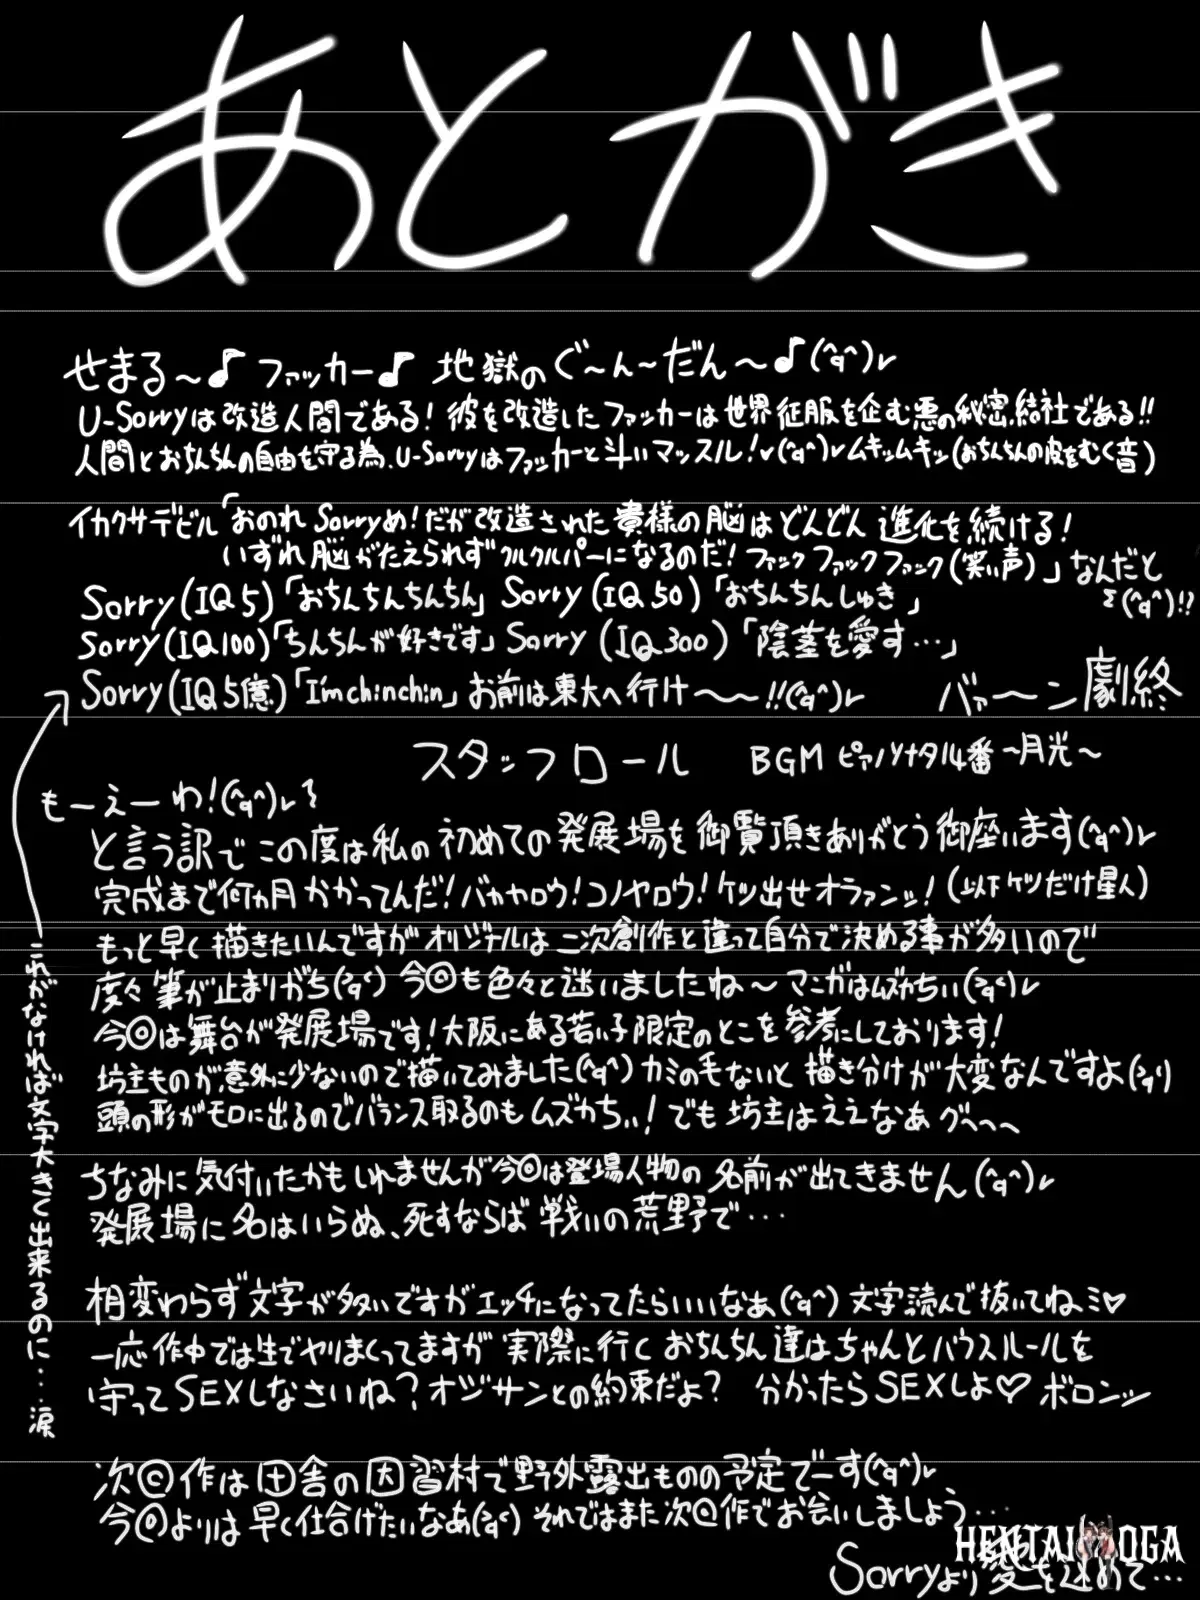 あとがき
せまる～♪ファッカー♪ 地獄のぐ～ん～だん～♪(^q^)r
U-Sorryは改造人間である!彼を改造したファッカーは世界征服を企む悪の秘密結社である!!
人間とおちんちんの自由を守る為、U-Sorryはファッカーと斗いマッスル!r(^q^)rムキッムキッ(おちんちんの皮をむく音)
イカクサデビル「おのれSorryめ!だが改造された貴様の脳はどんどん進化を続ける!
いずれ脳がたえられずクルクルパーになるのだ!ファックファックファック(笑い声)」なんだと
Σ(^q^)!!
Sorry(IQ5)「おちんちんちんちん」Sorry(IQ50)「おちんちんしゅき」
Sorry(IQ100)「ちんちんが好きです」Sorry(IQ300)「陰茎を愛す…」
Sorry(IQ5億)「I'm chinchin」お前は東大へ行け～～!!(^q^)r バァーン劇終
スタッフロール BGM ピアノソナタ14番～月光～
もーえーわ!(^q^)r
と言う訳でこの度は私の初めての発展場を御覧頂きありがとう御座います(^q^)r
完成まで何ヵ月かかってんだ!バカヤロウ!コノヤロウ!ケツ出せオラァンッ!(以下ケツだけ星人)
もっと早く描きたいんですがオリジナルは二次創作と違って自分で決める事が多いので
度々筆が止まりがち(^q^) 今回も色々と迷いましたね～マンガはムズカちぃ(^q^)r
今回は舞台が発展場です!大阪にある若い子限定のとこを参考にしております!
坊主ものが意外に少ないので描いてみました(^q^)カミの毛ないと描き分けが大変なんですよ
頭の形がモロに出るのでバランス取るのもムズカちぃ!でも坊主はええなあグヘヘヘ
ちなみに気付いたかもしれませんが今回は登場人物の名前が出てきません(^q^)r
発展場に名はいらぬ、死すならば戦いの荒野で…
相変わらず文字が多いですがエッチになってたらいいなあ(^q^)文字読んで抜いてね♡
一応作中では生でヤりまくってますが実際に行くおちんちん達はちゃんとハウスルールを
守ってSEXしなさいね?オジサンとの約束だよ? 分かったらSEXしよ♡ボロンッ
次回作は田舎の因習村で野外露出ものの予定でーす(^q^)r
今回よりは早く仕上げたいなあ(^q^)それではまた次回作でお会いしましょう…
Sorryより愛を込めて…
これがなければ文字大きく出来るのに…涙
HENTAI OGA